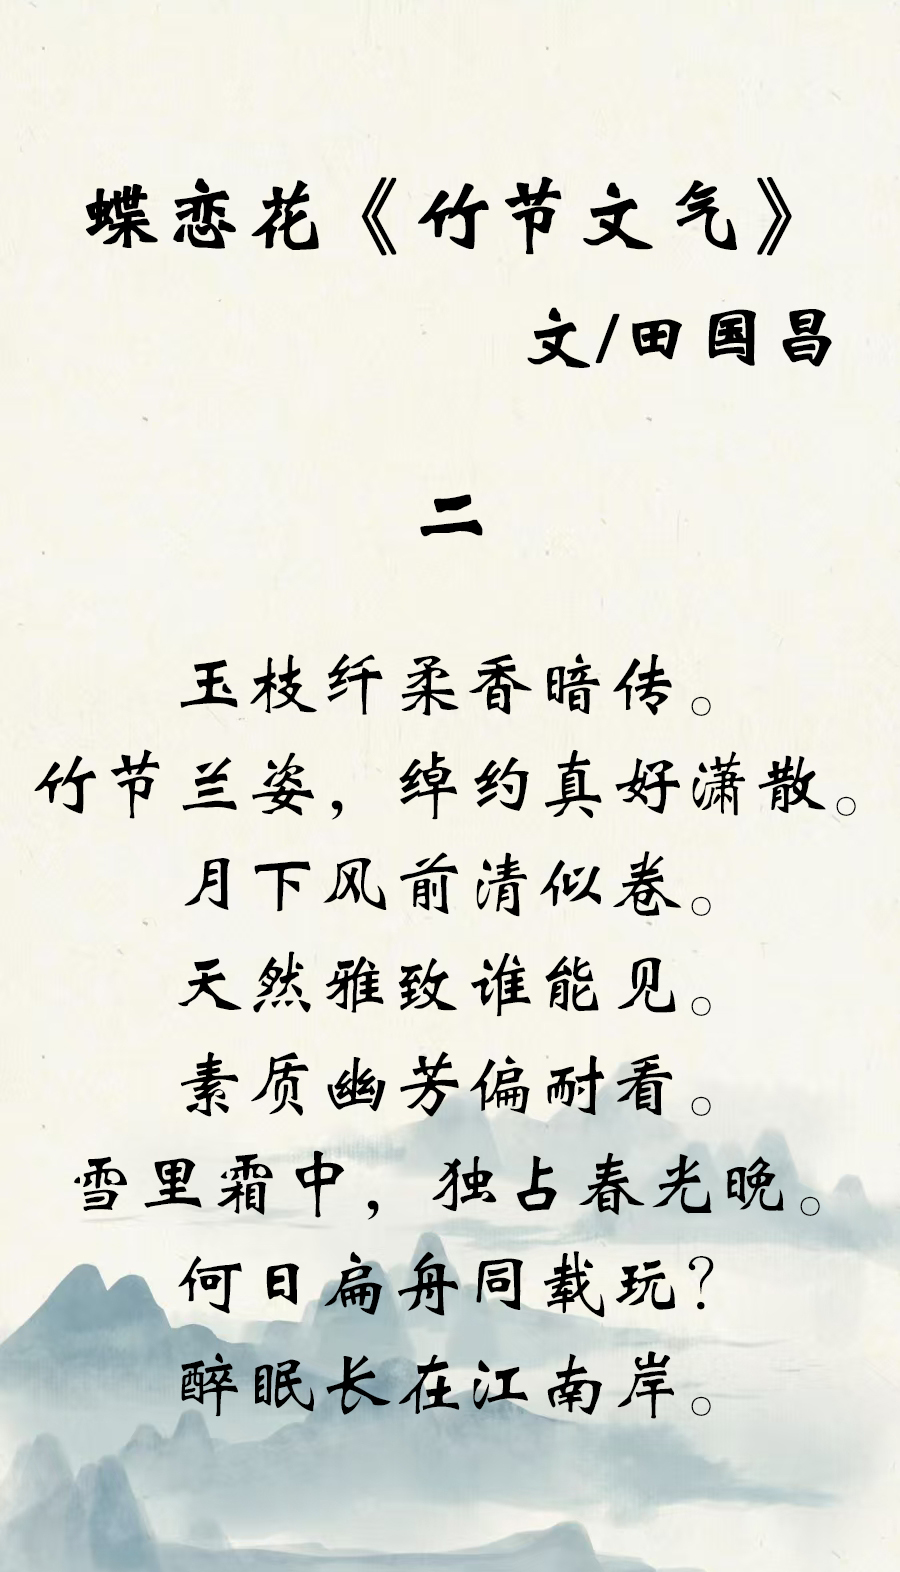 蝶恋花《竹节文气》
文/田国昌
二
玉枝纤柔香暗传。
竹节兰姿，绰约真好潇散。
月下风前清似卷。
天然雅致谁能见。
素质幽芳偏耐看。
雪里霜中，独占春光晚。
何日扁舟同载玩？
醉眠长在江南岸。